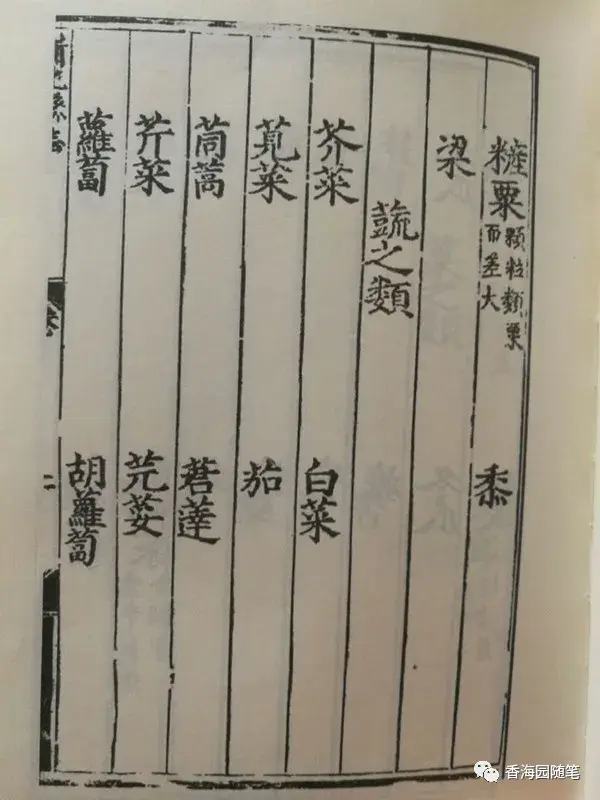 粟
顆粒類粟
而差大
黍
梁
蔬之類
芥菜 白菜
莧菜 茄
茼蒿 莙薘
芹菜 芫荽
蘿蔔 胡蘿蔔
香海园随笔